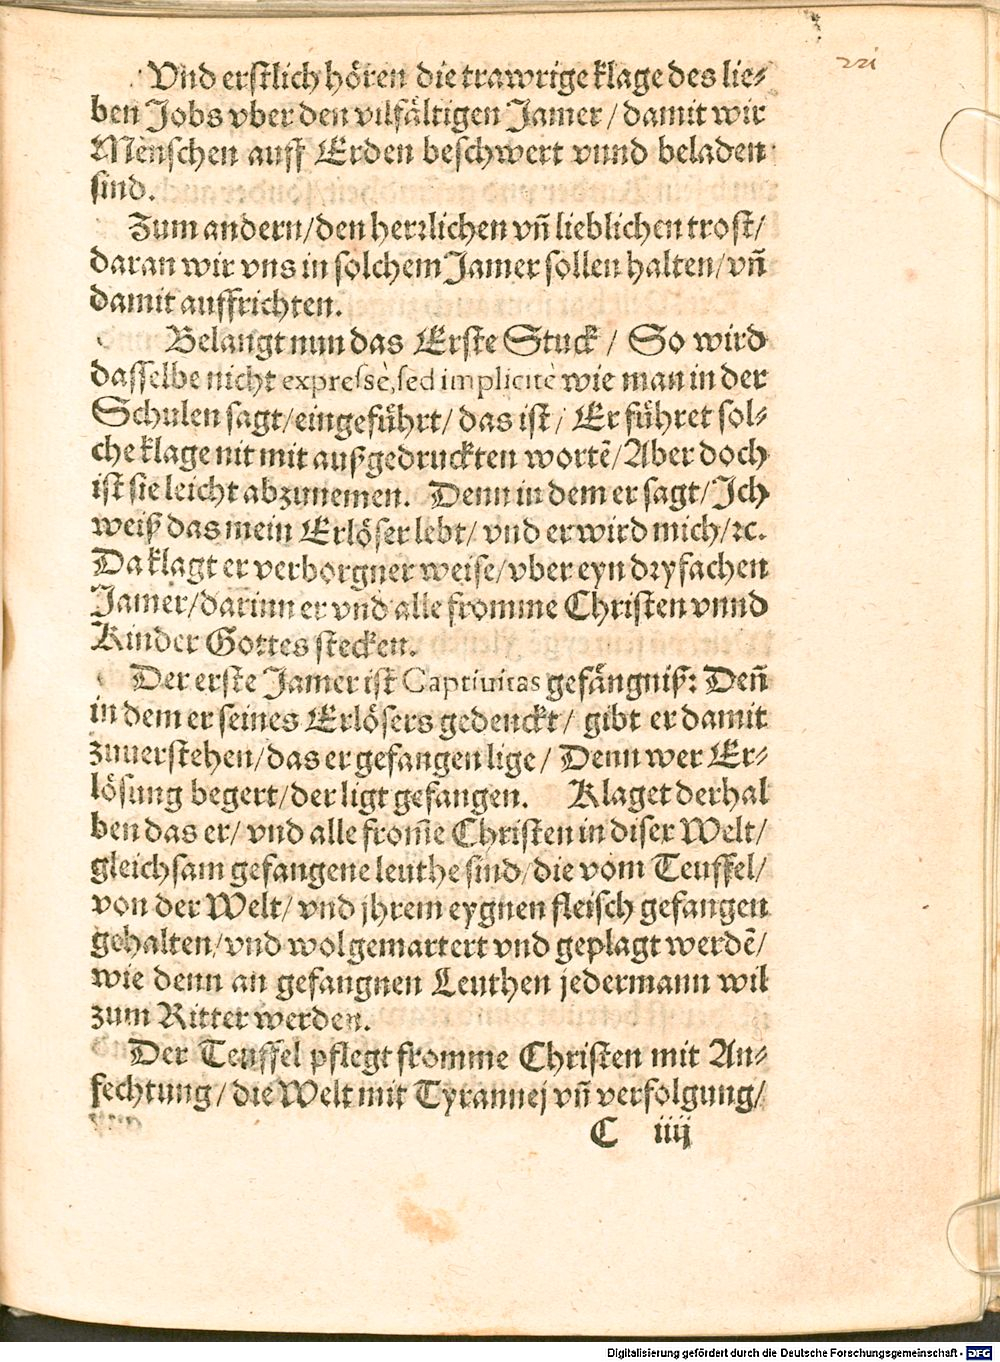 Vnd erstlich hören die trawrige klage des lie-
ben Jobs vber den vilfältigen Jamer / damit wir
Menschen auff Erden beschwert vnnd beladen
sind.
Zum andern/den herꝛlichen vñ lieblichen trost/
daran wir vns in solchem Jamer sollen halten/vñ
damit auffrichten.
Belangt nun das Erste Stuck / So wird
dasselbe nicht expressè, sed implicitè wie man in der
Schulen sagt/eingeführt/ das ist / Er führet sol-
che klage nit mit außgedruckten wortẽ/Aber doch
ist sie leicht abzunemen. Denn in dem er sagt/Ich
weiß das mein Erlöser lebt/ vnd er wird mich/ꝛc.
Da klagt er verborgner weise/vber eyn dꝛyfachen
Jamer/darinn er vnd alle fromme Christen vnnd
Kinder Gottes stecken.
Der erste Jamer ist Captiuitas gefängniß: Deñ
in dem er seines Erlösers gedenckt / gibt er damit
zuuerstehen/das er gefangen lige / Denn wer Er-
lösung begert/der ligt gefangen. Klaget derhal
ben das er/ vnd alle from̃e Christen in diser Welt/
gleichsam gefangene leuthe sind/die vom Teuffel/
von der Welt/ vnd jhrem eygnen fleisch gefangen
gehalten/vnd wol gemartert vnd geplagt werdẽ/
wie denn an gefangnen Leuthen jedermann wil
zum Ritter werden.
Der Teuffel pflegt fromme Christen mit An-
fechtung / die Welt mit Tyrannej vñ verfolgung/
C iiij
Digitalisierung gefördert durch die Deutsche Forschungsgemeinschaft - DFG